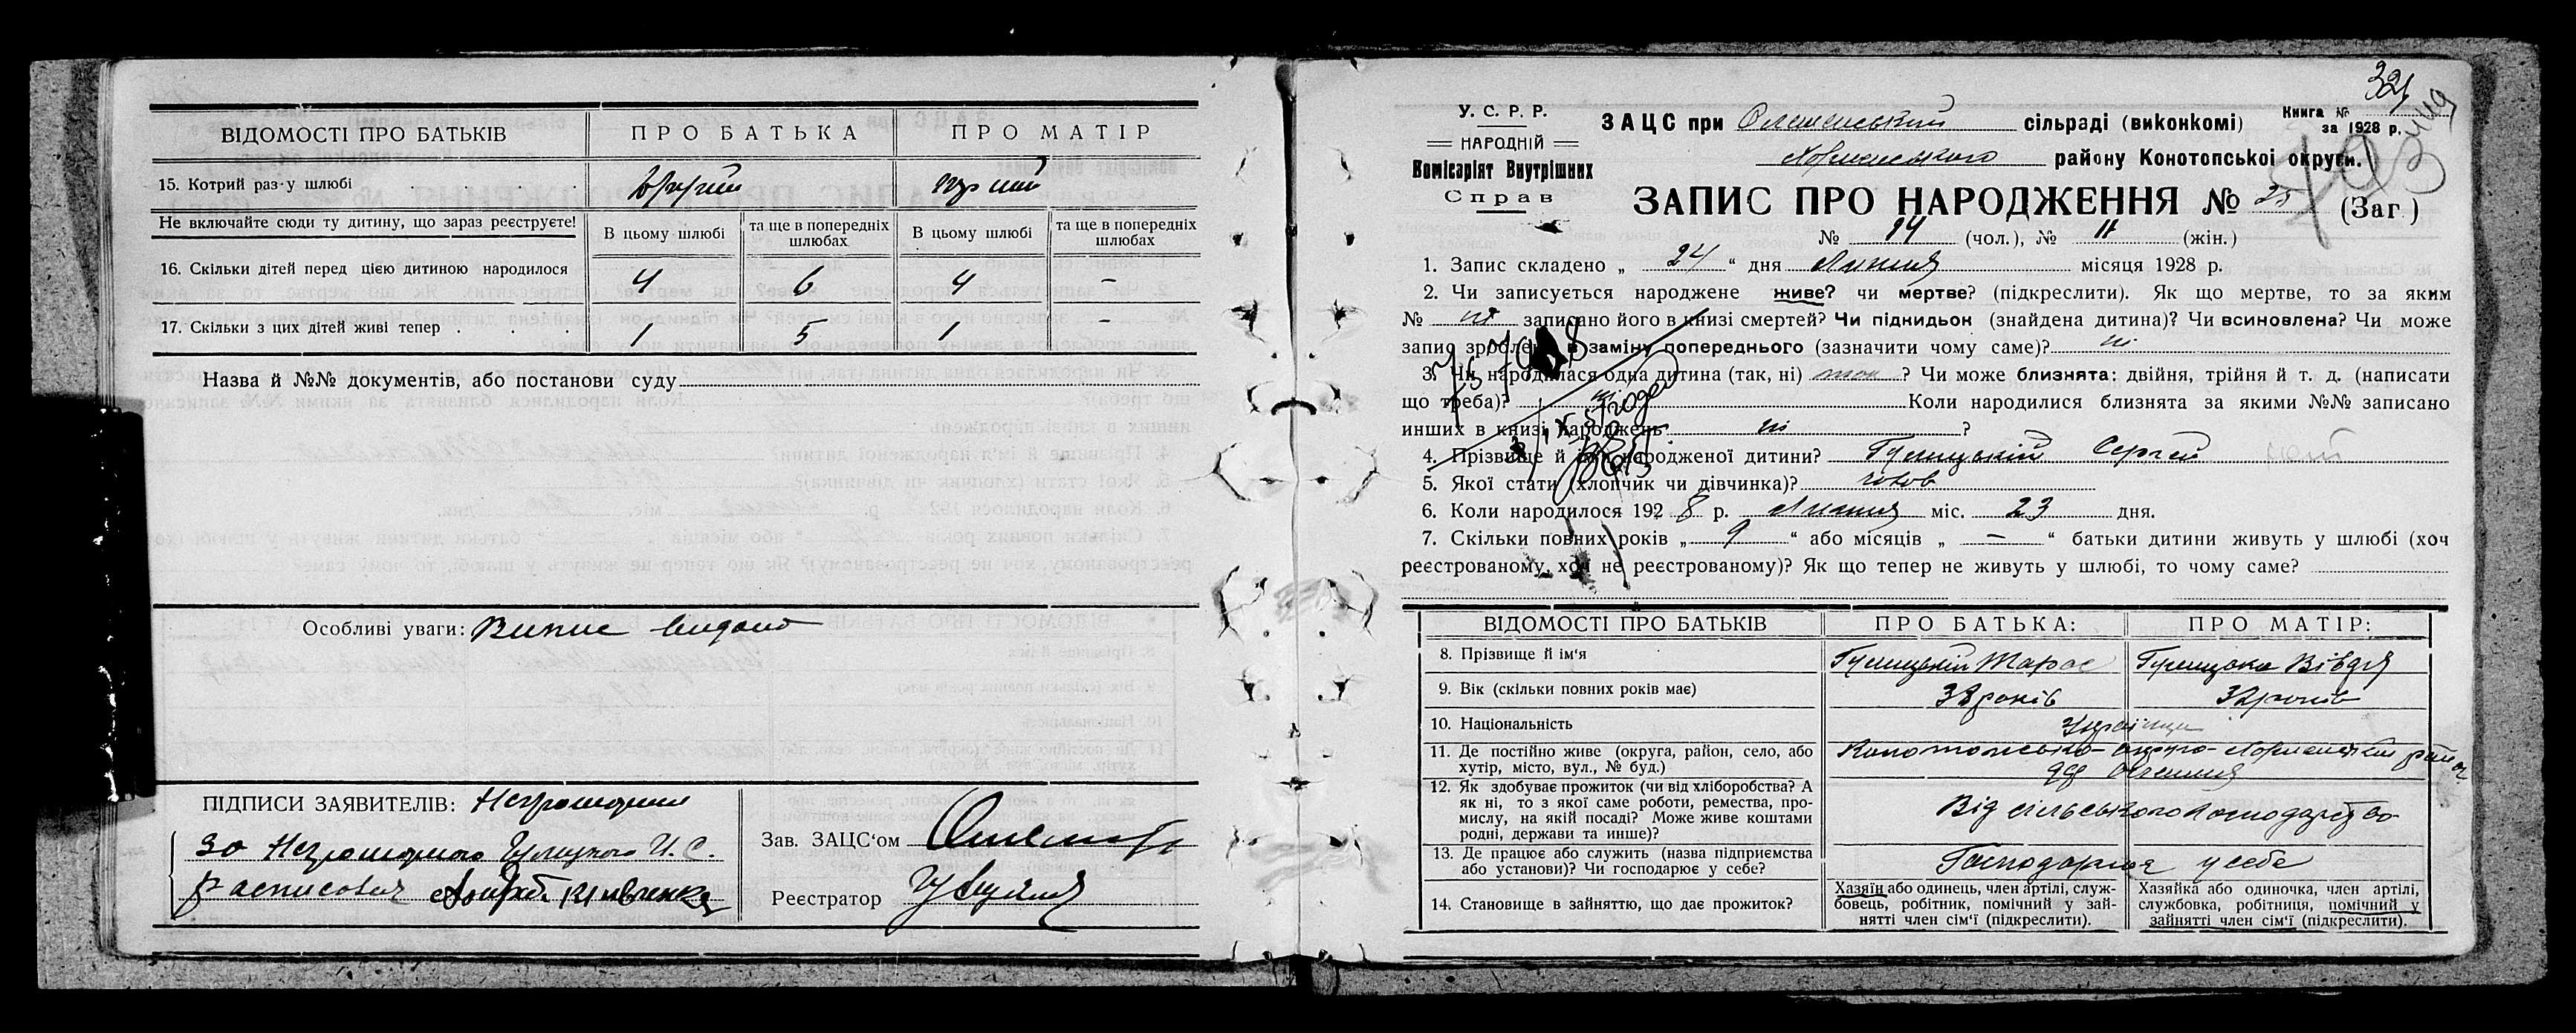 ВІДОМОСТІ ПРО БАТЬКІВ
ПРО БАТЬКА
ПРО МАТІР
15. Котрий раз у шлюбі
Не включайте сюди ту дитину, що зараз реєструєте!
В цьому шлюбі
та ще в попередніх шлюбах
В цьому шлюбі
та ще в попередніх шлюбах
16. Скільки дітей перед цією дитиною народилося 4 6 4 –
17. Скільки з цих дітей живі тепер . . . 1 5 1 –
Назва й №№ документів, або постанови суду
Особливі уваги: Випис видано
ПІДПИСИ ЗАЯВИТЕЛІВ:
Зав. ЗАЦС‘ом
Реєстратор
У. С. Р. Р.
НАРОДНІЙ
Комісаріят Внутрішних
Справ
ЗАЦС при сільраді (виконкомі)
району Конотопської округи.
Книга №
за 1928 р.
ЗАПИС ПРО НАРОДЖЕННЯ № 25 (Заг.)
№ 14 (чол.), № 11 (жін.)
1. Запис складено „ 24 “ дня Липня місяця 1928 р.
2. Чи записується народжене живе? чи мертве? (підкреслити). Як що мертве, то за яким
№ ні записано його в книзі смертей? Чи підкидьок (знайдена дитина)? Чи всиновлена? Чи може
запис зроблено в заміну попереднього (зазначити чому саме)? ні
3. Чи народилася одна дитина (так, ні) так ? Чи може близнята: двійня, трійня й т. д. (написати
що треба)? ні Коли народилися близнята за якими №№ записано
инших в книзі народжень ні ?
4. Прізвище й ім‘я народженої дитини? Сергій
5. Якої статі (хлопчик чи дівчинка)? чолов
6. Коли народилося 192 8 р. Липня міс. 23 дня.
7. Скільки повних років „ 9 “ або місяців „ – “ батьки дитини живуть у шлюбі (хоч
реєстрованому, хоч не реєстрованому)? Як що тепер не живуть у шлюбі, то чому саме?
ВІДОМОСТІ ПРО БАТЬКІВ
ПРО БАТЬКА:
ПРО МАТІР:
8. Прізвище й ім‘я Тарас Вівдя
9. Вік (скільки повних років має) 38 років 32 років
10. Національність Українці
11. Де постійно живе (округа, район, село, або
хутір, місто, вул., № буд.)
Конотопська округа
12. Як здобуває прожиток (чи від хліборобства? А
як ні, то з якої саме роботи, ремества, про-
мислу, на якій посаді? Може живе коштами
родні, держави та инше)?
Від сільського господарства
13. Де працює або служить (назва підприємства
або установи)? Чи господарює у себе?
у себе
14. Становище в зайняттю, що дає прожиток?
Хазяїн або одинець, член артілі, служ-
бовець, робітник, помічний у зай-
нятті член сім‘ї (підкреслити).
Хазяйка або одиночка, член артілі,
службовка, робітниця, помічний у
зайнятті член сім‘ї (підкреслити).